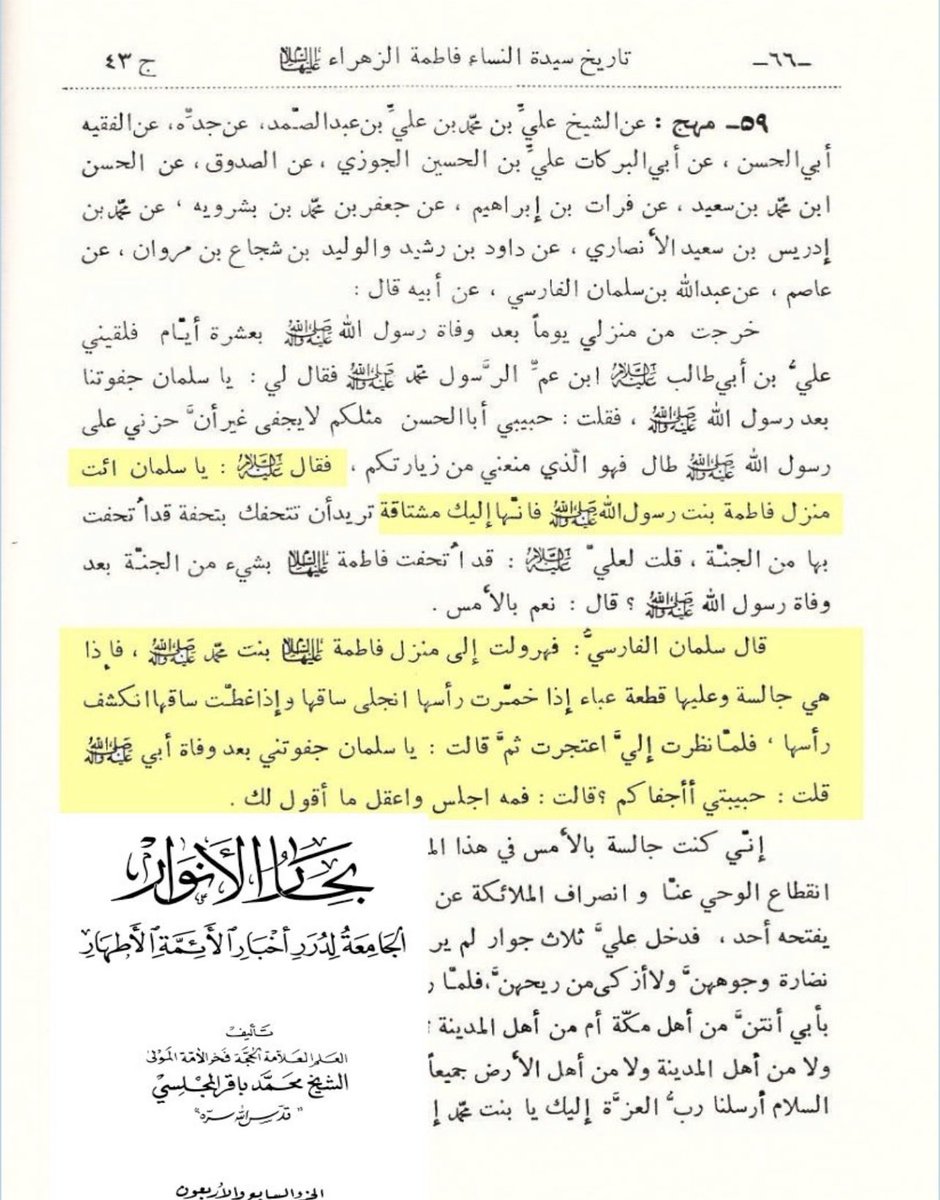 -٦٦-
تاريخ سيدة النساء فاطمة الزهراء عليها السلام
ج ٤٣
٥٩ـ مهج : عن الشيخ عليّ بن محمّد بن عليّ بن عبدالصّمد، عن جدّه، عن الفقيه
أبي الحسن ، عن أبي البركات عليّ بن الحسين الجوزي ، عن الصدوق ، عن الحسن
ابن محمّد بن سعيد ، عن فرات بن إبراهيم ، عن جعفر بن محمّد بن بشرويه ، عن محمّد بن
إدريس بن سعيد الأنصاري ، عن داود بن رشيد والوليد بن شجاع بن مروان ، عن
عاصم ، عن عبدالله بن سلمان الفارسي ، عن أبيه قال :
خرجت من منزلي يوماً بعد وفاة رسول الله صلى الله عليه وآله بعشرة أيّام فلقيني
عليّ بن أبي طالب عليه السلام ابن عمّ الرَّسول محمّد صلى الله عليه وآله فقال لي : يا سلمان جفوتنا
بعد رسول الله صلى الله عليه وآله ، فقلت : حبيبي أباالحسن مثلكم لايجفى غيرأنَّ حزني على
رسول الله صلى الله عليه وآله طال فهو الّذي منعني من زيارتكم ، فقال عليه السلام : يا سلمان ائت
منزل فاطمة بنت رسول الله صلى الله عليه وآله فانّها إليك مشتاقة تريدأن تتحفك بتحفة قدأُتحفت
بها من الجنّة ، قلت لعليّ عليه السلام : قدأُتحفت فاطمة عليها السلام بشيء من الجنّة بعد
وفاة رسول الله صلى الله عليه وآله ؟ قال : نعم بالأمس .
قال سلمان الفارسيُّ : فهرولت إلى منزل فاطمة عليها السلام بنت محمّد صلى الله عليه وآله ، فإذا
هي جالسة وعليها قطعة عباء إذا خمّرت رأسها انجلى ساقها وإذاغطّت ساقهاانكشف
رأسها ، فلمّانظرت إليَّ اعتجرت ثمَّ قالت : يا سلمان جفوتني بعد وفاة أبي صلى الله عليه وآله
قلت : حبيبتي أأجفاكم ؟ قالت : فمه اجلس واعقل ما أقول لك .
إنّي كنت جالسة بالأمس في هذا
انقطاع الوحي عنّا و انصراف الملائكة عن
يفتحه أحد ، فدخل عليَّ ثلاث جوار لم
نضارة وجوههنَّ ولاأزكى من ريحهنَّ،فلمّا
بأبي أنتنَّ من أهل مكّة أم من أهل المدينة
ولا من أهل المدينة ولا من أهل الأرض جميعاً
السلام أرسلنا ربُّ العزَّة إليك يا بنت محمّد
بحار الأنوار
الجامعة لدرر أخبار الأئمة الأطهار
تأليف
العلم العلامة الحجة فخر الأمة المولى
الشيخ محمد باقر المجلسي
"قدس الله سره"
الجزء السابع والأربعون